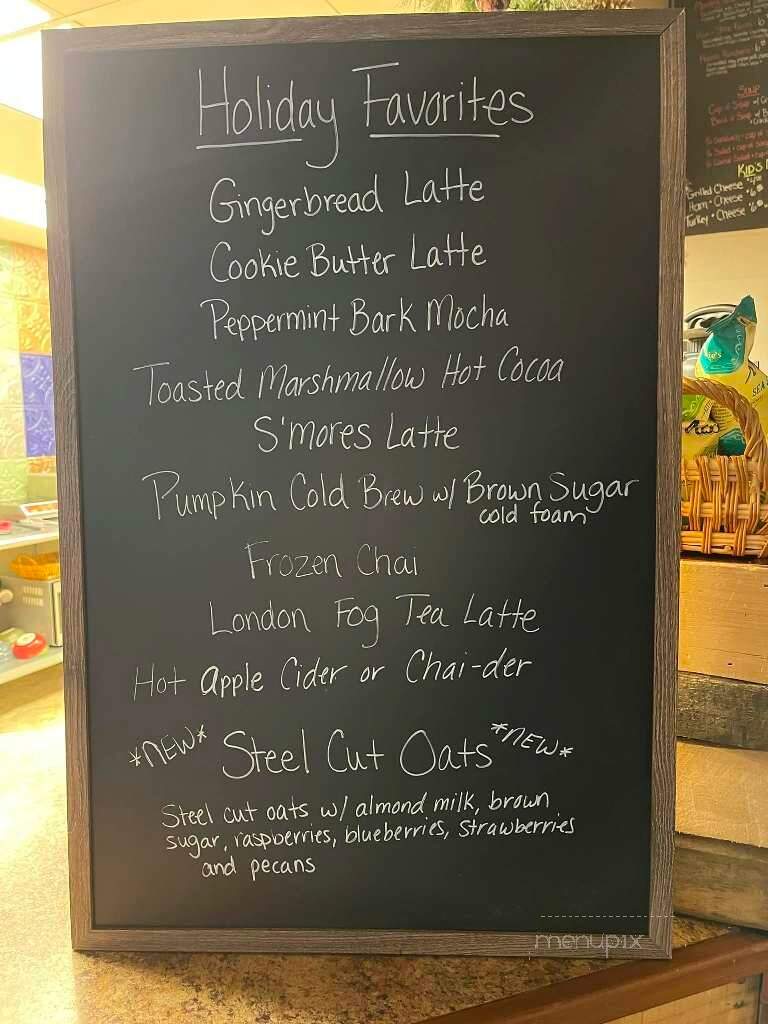 Holiday Favorites
Gingerbread Latte
Cookie Butter Latte
Peppermint Bark Mocha
Toasted Marshmallow Hot Cocoa
S'mores Latte
Pumpkin Cold Brew w/ Brown Sugar
cold foam
Frozen Chai
London Fog Tea Latte
Hot Apple Cider or Chai-der
*NEW* Steel Cut Oats *NEW*
Steel cut oats w/ almond milk, brown
sugar, raspberries, blueberries, strawberries
and pecans
menupix
Soup
Cup of Soup
KID'S
Grilled Cheese
Ham + Cheese
Turkey + Cheese